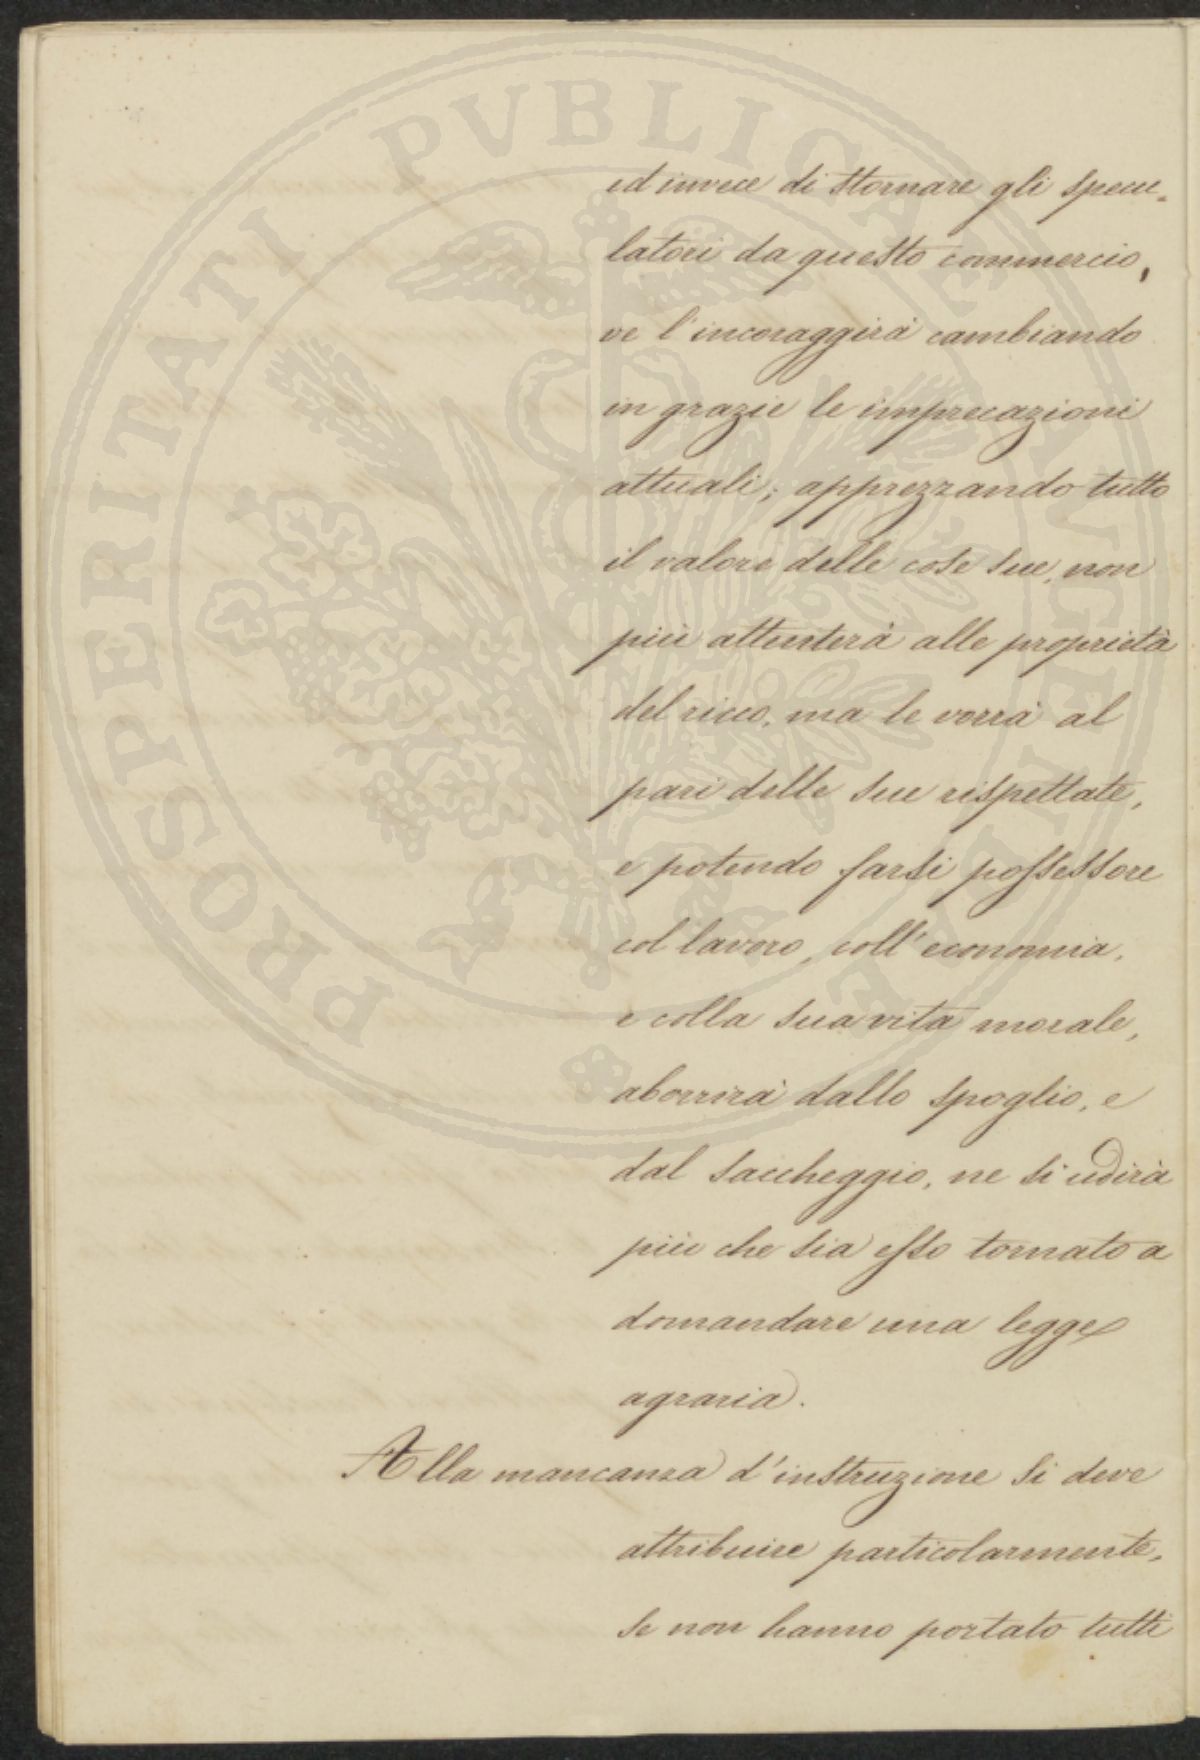 ed invece di stornare gli specu-
latori da questo commercio,
ve l'incoraggirà cambiando
in grazie le imprecazioni
attuali; apprezzando tutto
il valore delle cose sue, non
più attenterà alle proprietà
del ricco, ma le vorrà al
pari delle sue rispettate,
e potendo farsi possessore
col lavoro, coll'economia,
e colla sua vita morale,
aborrirà dallo spoglio, e
dal saccheggio, ne si udirà
più che sia esso tornato a
domandare una legge
agraria.
Alla mancanza d'instruzione si deve
attribuire particolarmente,
se non hanno portato tutti
PROSPERITATI PVBLICAE AVGENDAE